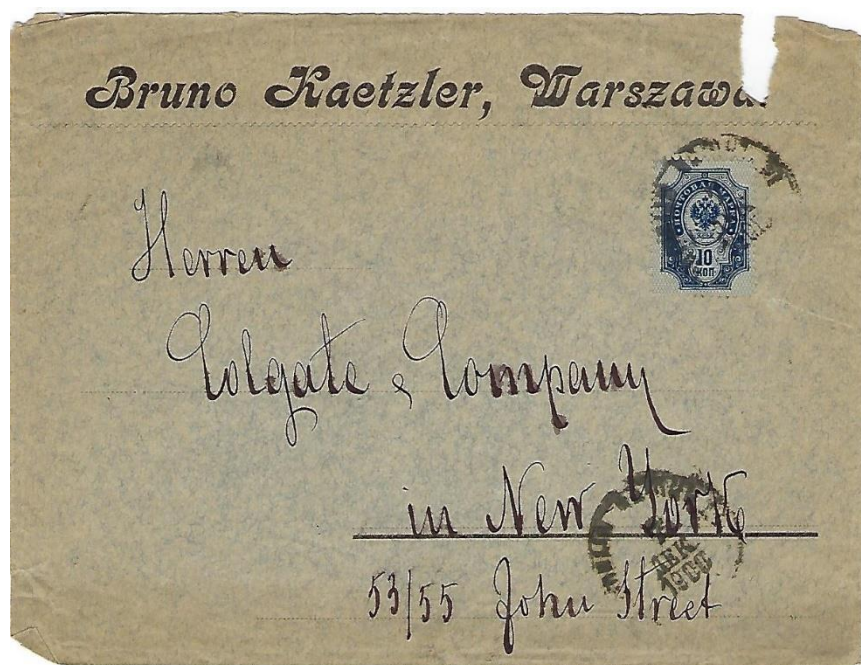 Bruno Kaetzler, Warszawa.
ПОЧТОВАЯ МАРКА
10
КОП
Herren
Colgate & Company
in New York
ДЕК.
1900
53/55 John Street